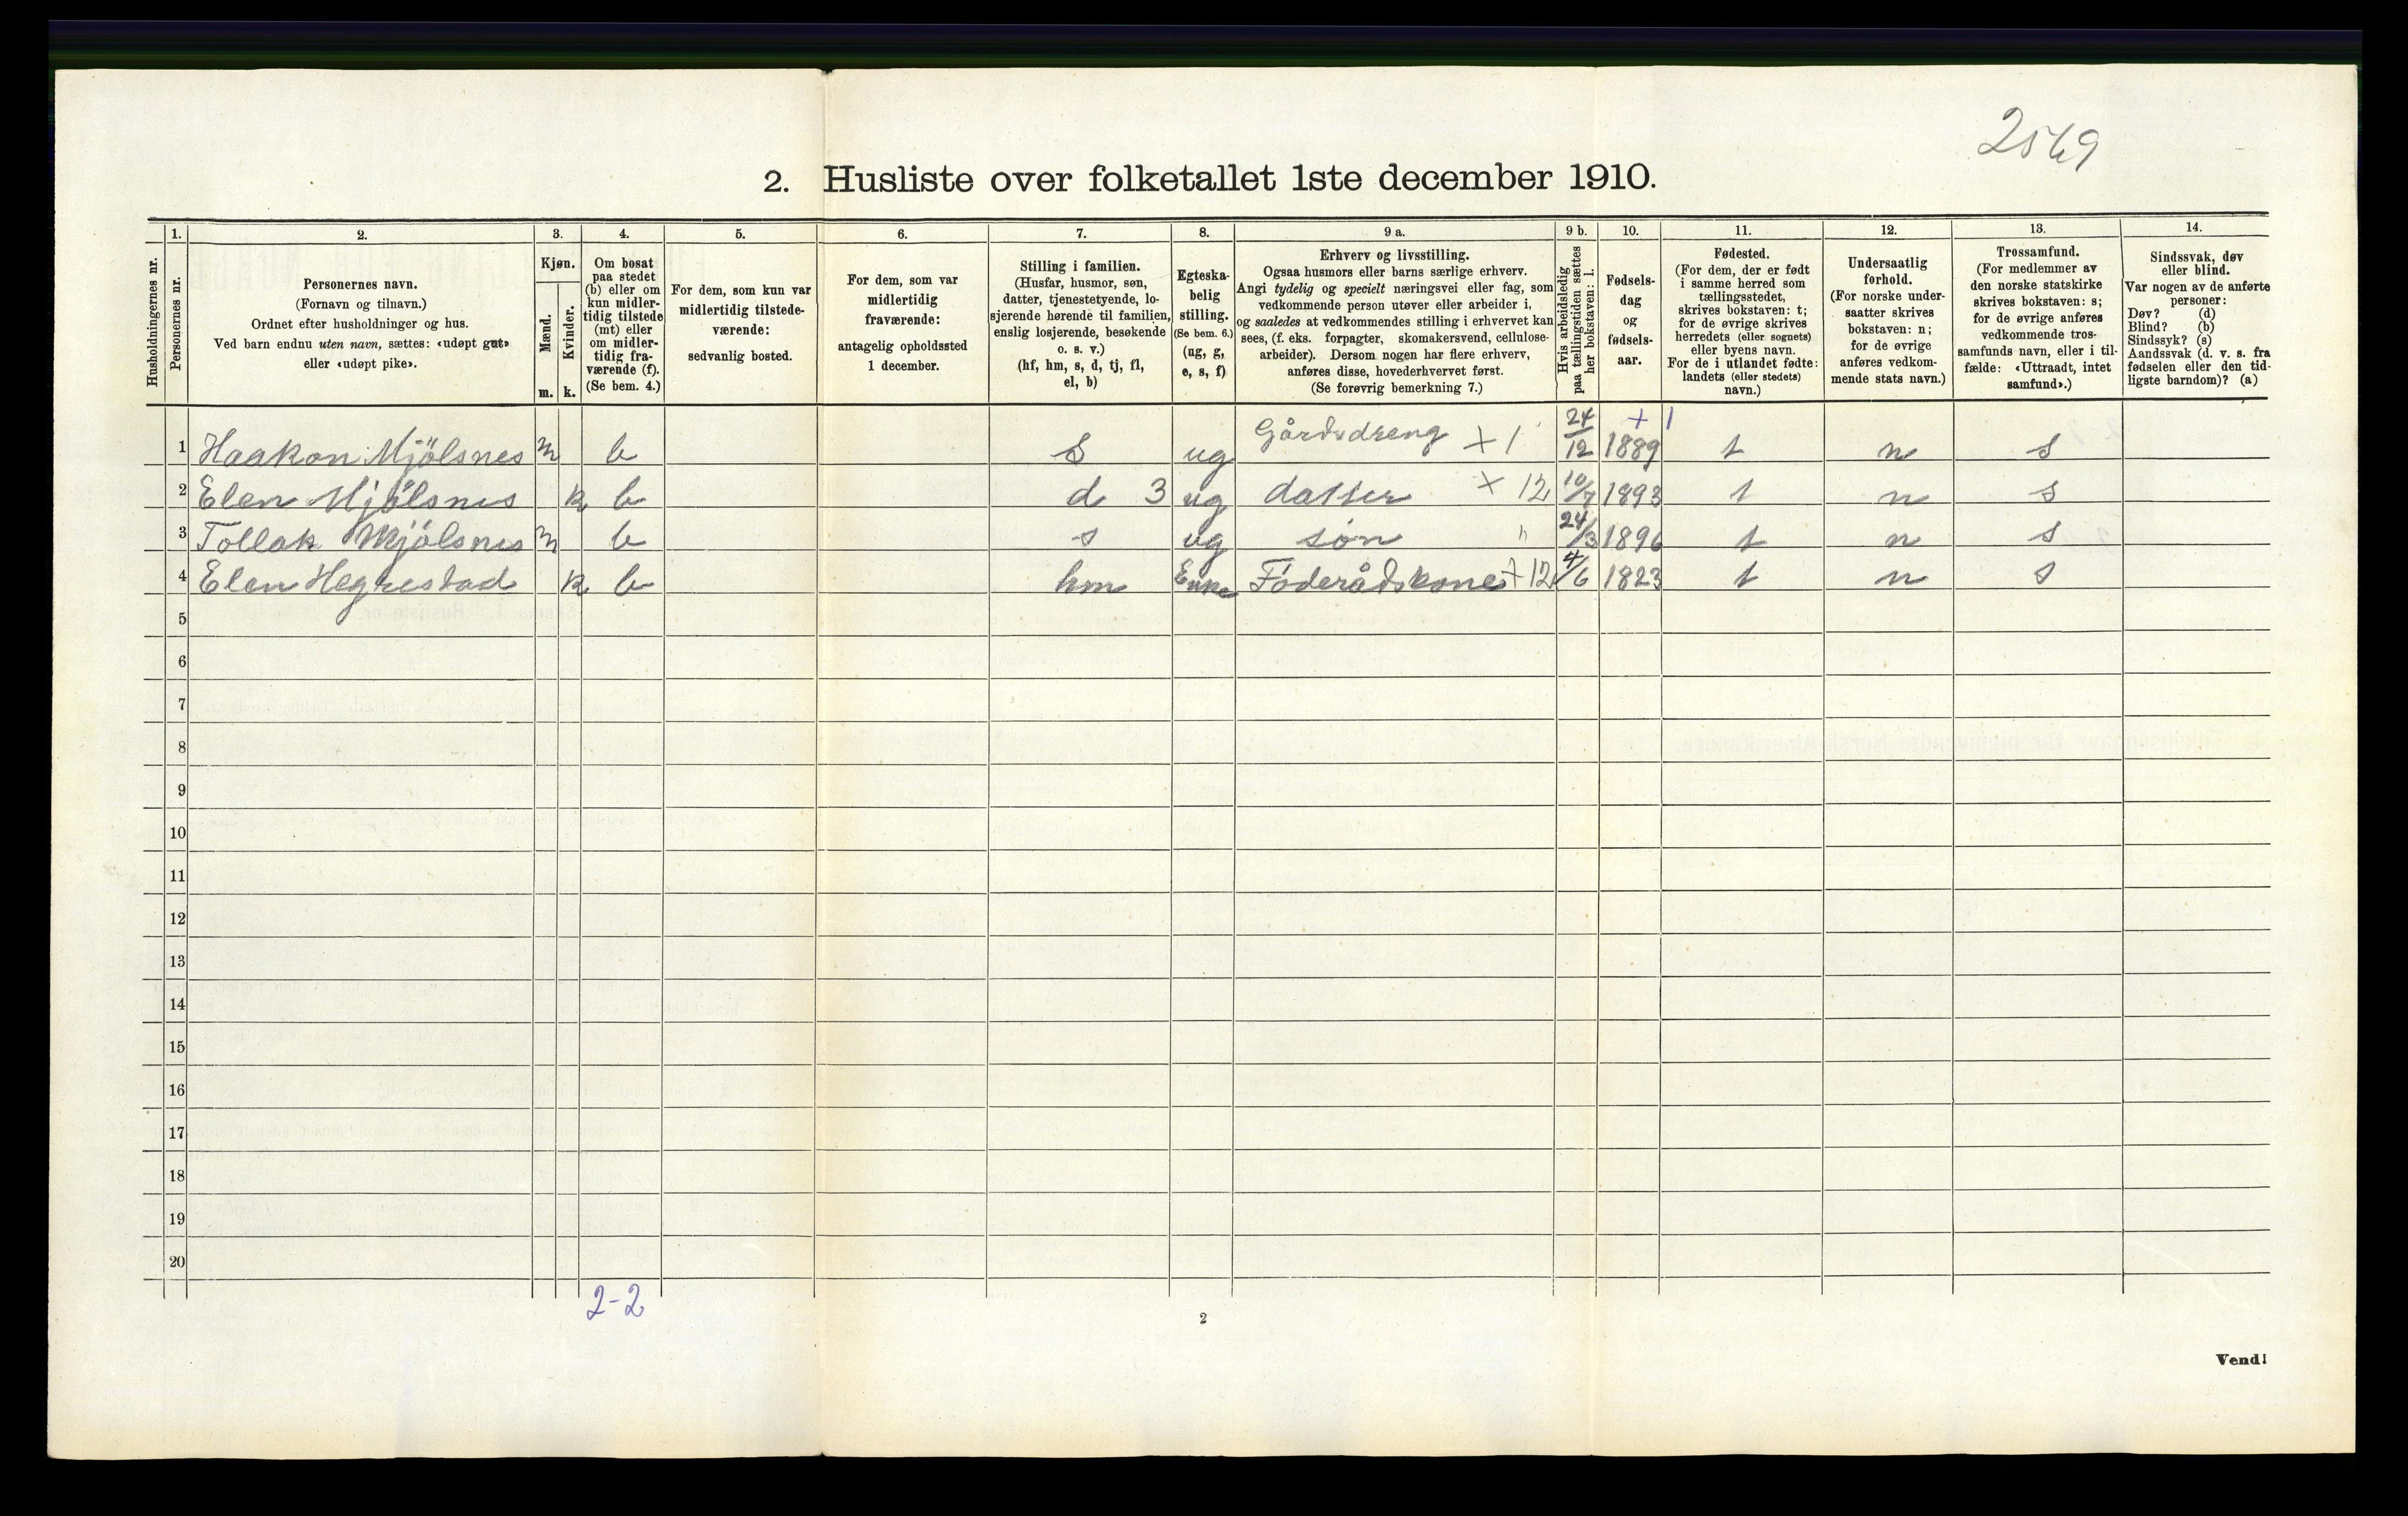 2569
2. Husliste over folketallet 1ste december 1910.
Husholdningernes nr.
1.
Personernes nr.
2.
Personernes navn.
(Fornavn og tilnavn.)
Ordnet efter husholdninger og hus.
Ved barn endnu uten navn, sættes: «udøpt gut»
eller «udøpt pike».
3.
Kjøn.
Mænd.
Kvinder.
m. k.
4.
Om bosat
paa stedet
(b) eller om
kun midler-
tidig tilstede
(mt) eller
om midler-
tidig fra-
værende (f).
(Se bem. 4.)
5.
For dem, som kun var
midlertidig tilstede-
værende:
sedvanlig bosted.
6.
For dem, som var
midlertidig
fraværende:
antagelig opholdssted
1 december.
7.
Stilling i familien.
(Husfar, husmor, søn,
datter, tjenestetyende, lo-
sjerende hørende til familien,
enslig losjerende, besøkende
o. s. v.)
(hf, hm, s, d, tj, fl,
el, b)
8.
Egteska-
belig
stilling.
(Se bem. 6.)
(ug, g,
e, s, f)
9 a.
Erhverv og livsstilling.
Ogsaa husmors eller barns særlige erhverv.
Angi tydelig og specielt næringsvei eller fag, som
vedkommende person utøver eller arbeider i,
og saaledes at vedkommendes stilling i erhvervet kan
sees, (f. eks. forpagter, skomakersvend, cellulose-
arbeider). Dersom nogen har flere erhverv,
anføres disse, hovederhvervet først.
(Se forøvrig bemerkning 7.)
9 b.
Hvis arbeidsledig
paa tællingstiden sættes
her bokstaven: l.
10.
Fødsels-
dag
og
fødsels-
aar.
11.
Fødested.
(For dem, der er født
i samme herred som
tællingsstedet,
skrives bokstaven: t;
for de øvrige skrives
herredets (eller sognets)
eller byens navn.
For de i utlandet fødte:
landets (eller stedets)
navn.)
12.
Undersaatlig
forhold.
(For norske under-
saatter skrives
bokstaven: n;
for de øvrige
anføres vedkom-
mende stats navn.)
13.
Trossamfund.
(For medlemmer av
den norske statskirke
skrives bokstaven: s;
for de øvrige anføres
vedkommende tros-
samfunds navn, eller i til-
fælde: «Uttraadt, intet
samfund».)
14.
Sindssvak, døv
eller blind.
Var nogen av de anførte
personer:
Døv? (d)
Blind? (b)
Sindssyk? (s)
Aandssvak (d. v. s. fra
fødselen eller den tid-
ligste barndom)? (a)
1 Haakon Mjölsnes m b s ug Gårdsdreng + 1 24/12 1889 + 1 t n s
2 Elen Mjölsnes k b d 3 ug datter + 12 10/7 1893 t n s
3 Tollak Mjölsnes m b s ug søn " 24/3 1896 t n s
4 Elen Hegrestad k b hm Enke Föderådskone + 12 4/6 1823 t n s
5
6
7
8
9
10
11
12
13
14
15
16
17
18
19
20
2-2
2
Vend!